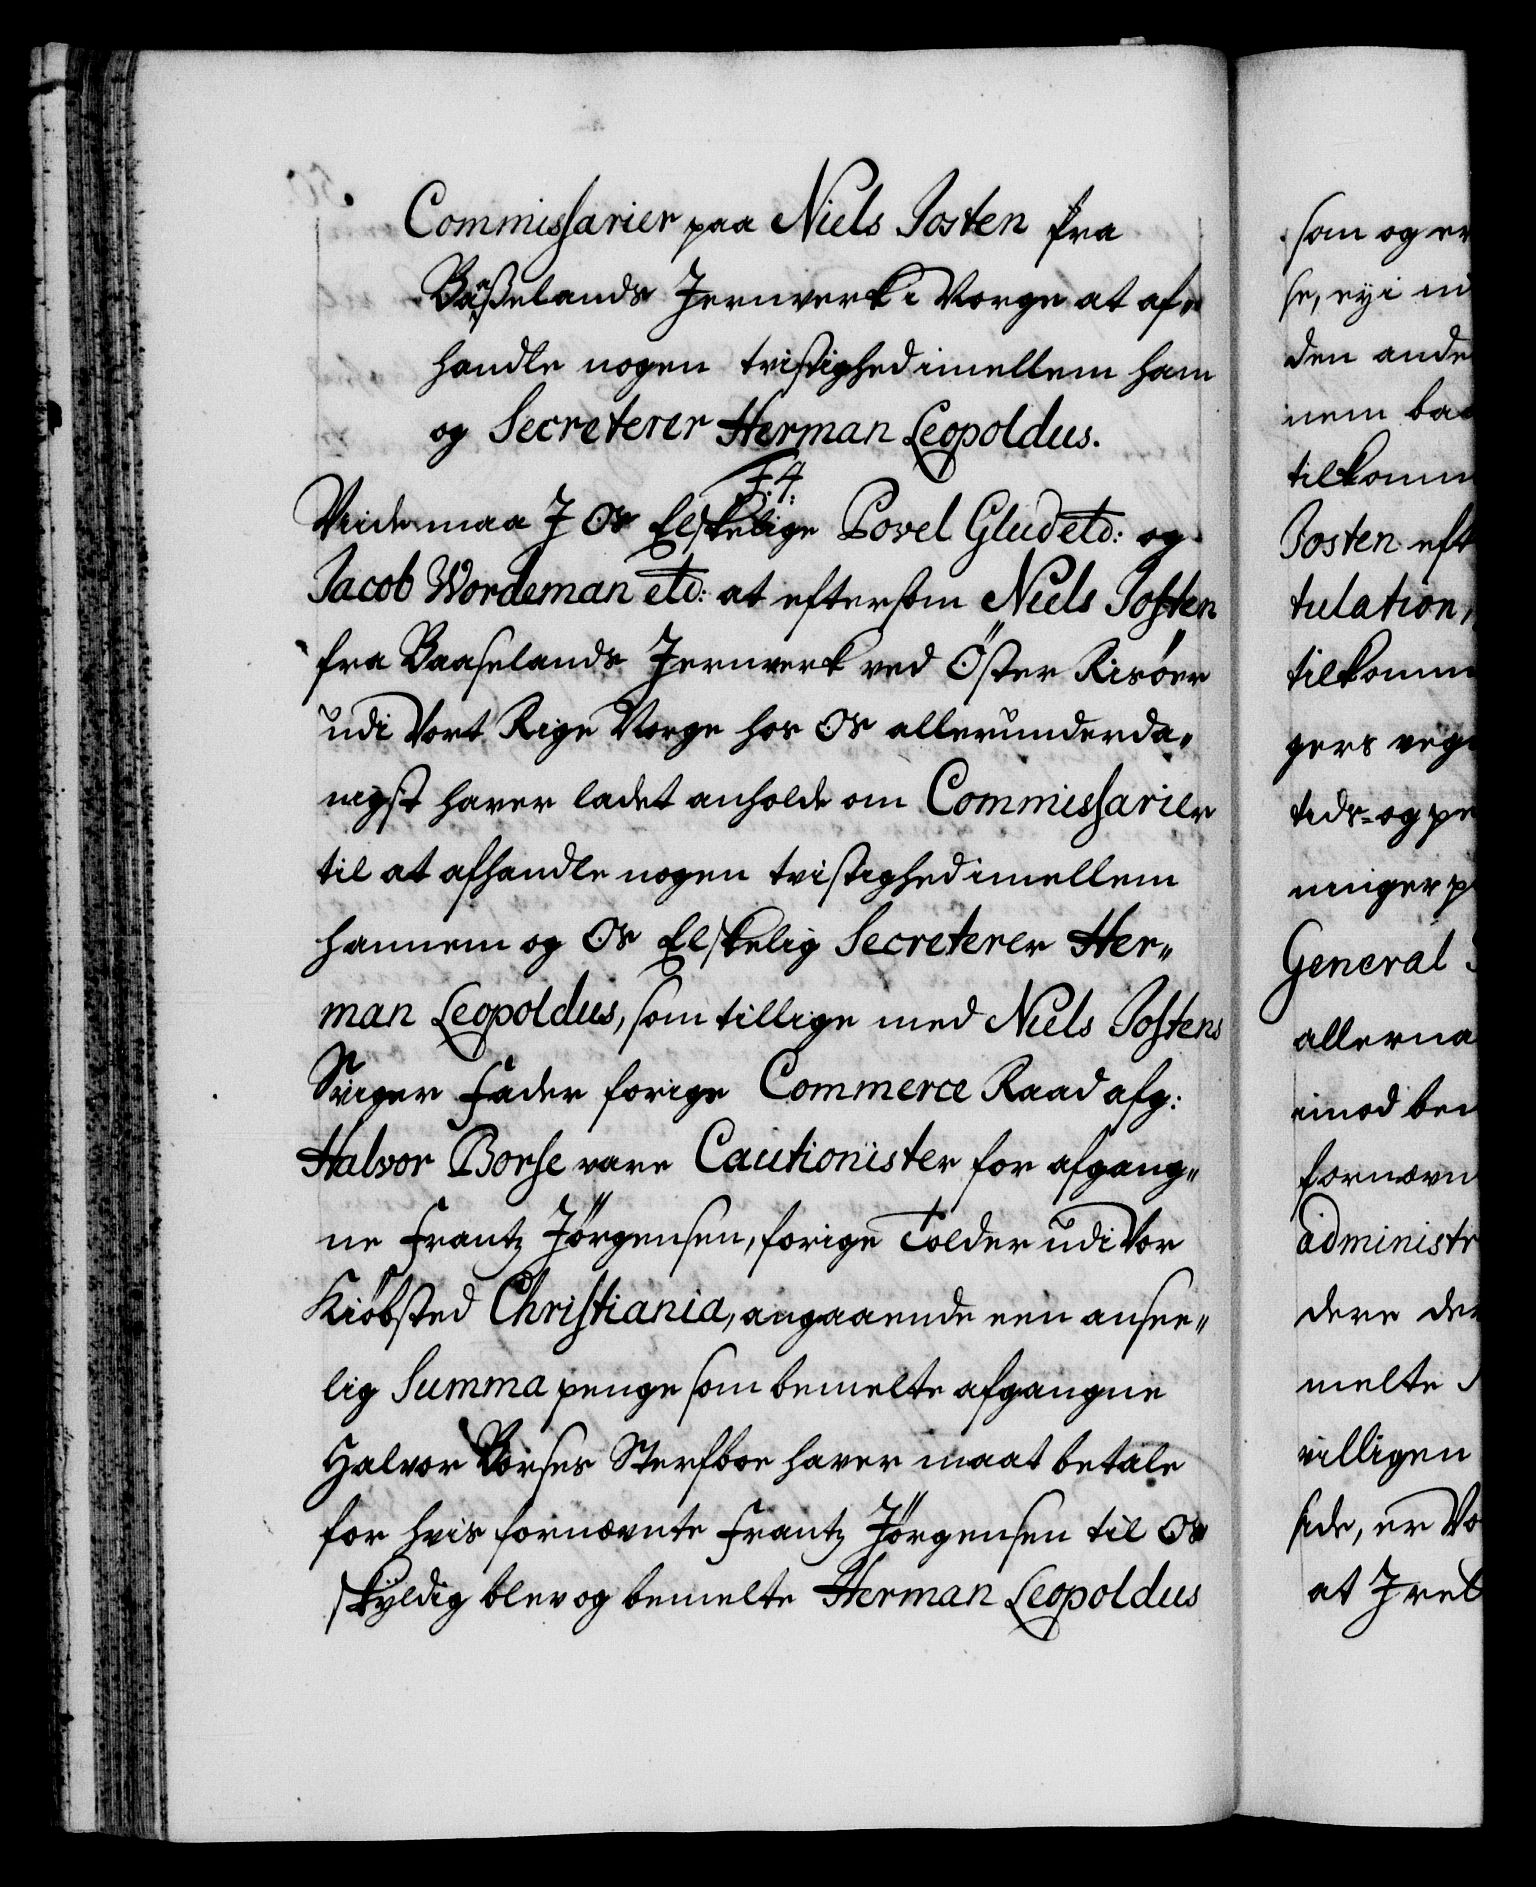 Commissarier paa Niels Josten fra
Baaselands Jernverk i Norge at af„
handle nogen tvistighed imellem ham
og Secreterer Herman Leopoldus.
F. 4:
Viide maa J Os Elskelige Povel Glud etc: og
Jacob Wordeman etc: at eftersom Niels Josten
fra Baaselands Jernverk ved Öster Risöer
udi Vort Rige Norge hos Os allerunderda„
nigst haver ladet anholde om Commissarier
til at afhandle nogen tvistighed imellem
hannem og Os Elskelig Secreterer Her„
man Leopoldus, som tillige med Niels Jostens
Sviger Fader forige Commerce Raad afg:
Halvor Borse vare Cautionister for afgang„
ne Frantz Jörgensen, forige Tolder udi Vor
Kiöbsted Christiania, angaaende een ansee„
lig Summa penge som bemelte afgangne
Halvor Borses Sterfboe haver maat betale
for hvis fornævnte Frantz Jörgensen til Os
skyldig blev og bemelte Herman Leopoldus
som og er
se, ey i
den ande
nem
tilkomm
Josten eft
tulation,
tilkomm
gers veg
tids-og pe
ninger p
General
allerna
imod be
fornævn
administr
dere
melte
villigen
side, er Vo
at J vel